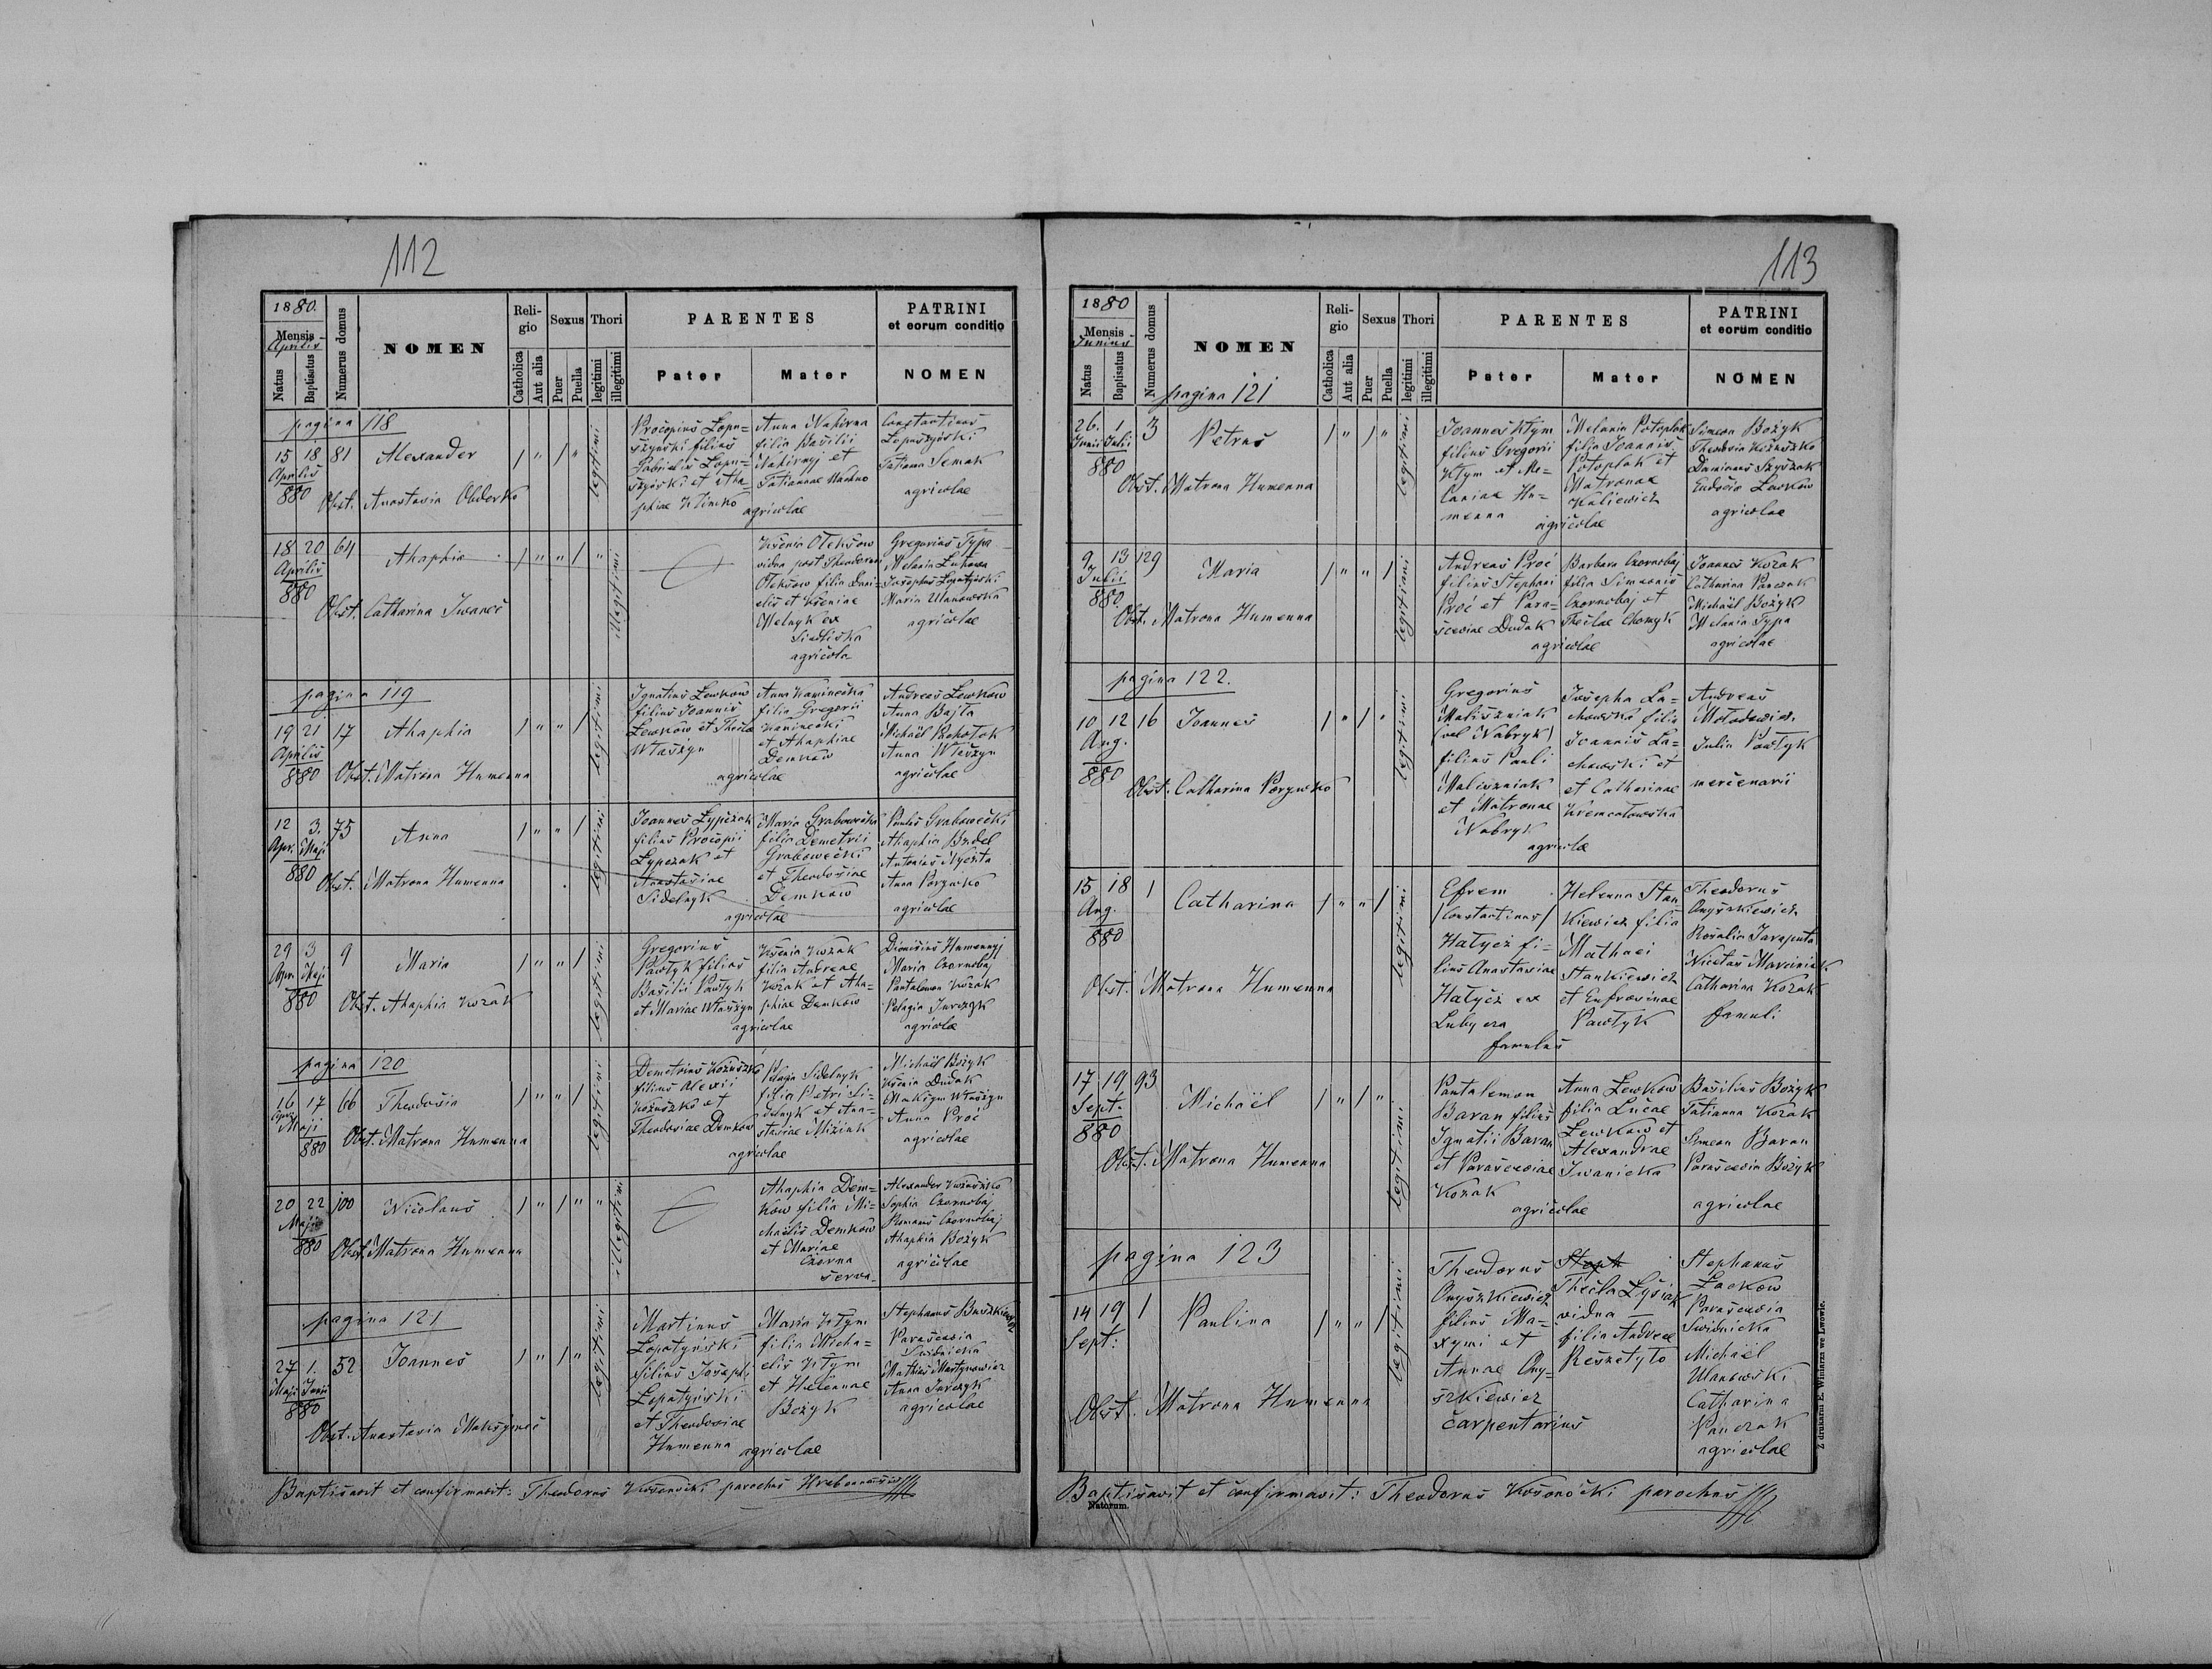 112
1880.
Mensis
Aprilis
Natus
Baptisatus
Numerus domus
NOMEN
Religio
Catholica
Aut alia
Sexus
Puer
Puella
Thori
legitimi
illegitimi
PARENTES
Pater
Mater
PATRINI
et eorum conditio
NOMEN
pagina 118
15 18 81 Alexander
Aprilis
880
Obst. Anastasia
legitimi
Procopius Lopu-
szyński filius
Gabrielis Lopu-
szyński et Aha-
phiae Klimko
Anna Nakirna
filia Basilii
Nakirnyj et
Tatiannae
agricolae
Constantinus
Lopuszyński
Tatiana Semak
agricolae
18 20 64 Ahaphia
Aprilis
880
Obst. Catharina Iwaneć
illegitimi
Kšenia Oleksow
vidua post Theodorum
Oleksow filia Dani-
elis et Kseniae
Melnyk ex
Siedliska
agricola
Gregorius Typa
Melania
Josephus Lopatyński
Maria Ulanowska
agricolae
pagina 119
19 21 17 Ahaphia
Aprilis
880
Obst. Matrona Humenna
legitimi
Ignatius Lewkow
filius Joannis
Lewkow et Theclae
Właszyn
Anna Kaminecka
filia Gregorii
Kaminecki
et Ahaphiae
Demkow
agricolae
Andreas Lewkow
Anna Bajla
Michaël Rohotok
Anna Właszyn
agricolae
12 3. 75 Anna
Apr. Maji
880
Obst. Matrona Humenna
legitimi
Joannes Lypczak
filius Procopii
Lypczak et
Anastasiae
Sidelnyk
Maria Grabowecka
filia Demetrii
Grabowecki
et Theodosiae
Demkow
agricolae
Paulus Grabowecki
Ahaphia Bidel
Antonius Nyčyta
Anna Porywko
agricolae
29 3 9 Maria
Apr. Maji
880
Obst. Ahaphia Kozak
legitimi
Gregorius
Pawlyk filius
Basilii Pawlyk
et Mariae Właszyn
Kšenia Kozak
filia Andreae
Kozak et Aha-
phiae Demkow
agricolae
Dionisius Humennyj
Maria Czornobaj
Pantalemon Kozak
Pelagia Jurczyk
agricolae
pagina 120
16 17 66 Theodosia
Maji
880
Obst. Matrona Humenna
legitimi
Demetrius Kožuszko
filius Alexii
Kožuszko et
Theodosiae Demkow
Pelagia Sidelnyk
filia Petri Si-
delnyk et Ana-
stasiae Miziuk
agricolae
Michaël Božyk
Kšenia Dudak
Maksym Właszyn
Anna Proć
agricolae
20 22 100 Nicolaus
Maji
880
Obst. Matrona Humenna
illegitimi
Ahaphia Dem-
kow filia Mi-
chaëlis Demkow
et Mariae
Czorna
serva
Alexander Kožuszko
Sophia Czornobaj
Romanus Czornobaj
Ahaphia Božyk
agricolae
pagina 121
27 1. 52 Joannes
Maji Junii
880
Obst. Anastasia Maksymeć
legitimi
Martinus
Lopatyński
filius Josephi
Lopatyński
et Theodosiae
Humenna
Maria Klym
filia Micha-
elis Klym
et Helenae
Božyk
agricolae
Stephanus Buszkiewicz
Parascewia
Swidnicka
Mathias Martynowicz
Anna Jurczyk
agricolae
Baptisavit et confirmavit: Theodorus Kosonocki parochus
113
1880
Mensis
Junius
Natus
Baptisatus
Numerus domus
NOMEN
pagina 121
Religio
Catholica
Aut alia
Sexus
Puer
Puella
Thori
legitimi
illegitimi
PARENTES
Pater
Mater
PATRINI
et eorum conditio
NOMEN
26. 1 3 Petrus
Junii Julii
880
Obst. Matrona Humenna
legitimi
Joannes Klym
filius Gregorii
Klym et Me-
laniae Hu-
menna
Melania Potoplak
filia Joannis
Potoplak et
Matronae
Kuliewicz
agricolae
Simeon Božyk
Theodosia Kožuszko
Damianus Szyszak
Eudocia Lackow
agricolae
9 13 129 Maria
Julii
880
Obst. Matrona Humenna
legitimi
Andreas Proć
filius Stephani
Proć et Para-
scewiae Dudak
Barbara Czornobaj
filia Simeonis
Czornobaj et
Theclae Chomyk
agricolae
Joannes Kozak
Catharina Panczak
Michaël Božyk
Melania Typa
agricolae
pagina 122.
10 12 16 Joannes
Aug.
880
Obst. Catharina Porywko
legitimi
Gregorius
Maliszniak
(vel Nabryk)
filius Pauli
Maliszniak
et Matronae
Nabryk
Josepha La-
chowska filia
Joannis La-
chowski et
et Catharinae
Kremcatowska
agricolae
Andreas
Mołodowicz
Julia Pawlyk
mercenarii
15 18 1 Catharina
Aug.
880
Obst. Matrona Humenna
legitimi
Efrem
/Constantinus/
Hałycz fi-
lius Anastasiae
Hałycz ex
Lubycza
famulus
Helenna Stan-
kiewicz filia
Mathaei
Stankiewicz
et Eufrosinae
Pawlyk
Theodorus
Onyszkiewicz
Rosalia Taraputa
Nicetas Marciniak
Catharina Kozak
famuli
17 19 93 Michaël
Sept.
880
Obst. Matrona Humenna
legitimi
Pantalemon
Baran filius
Ignatii Baran
et Parascewiae
Kozak
Anna Lewkow
filia Lucae
Lewkow et
Alexandrae
Iwanicka
agricolae
Basilius Božyk
Tatianna Kozak
Simeon Baran
Parascewia Božyk
agricolae
pagina 123
14 19 1 Paulina
Sept.
Obst. Matrona Humenna
legitimi
Theodorus
Onyszkiewicz
filius Ma-
xymi et
Annae Ony-
szkiewicz
carpentarius
Steph
Thecla Łysiak
vidua —
filia Andreae
Reszetyło
Stephanus
Lackow
Parascewia
Swidnicka
Michaël
Ulanowski
Catharina
Panczak
agricolae
Baptisavit et confirmavit: Theodorus Kosonocki parochus
Natorum.
Z drukarni E. Winiarza we Lwowie.